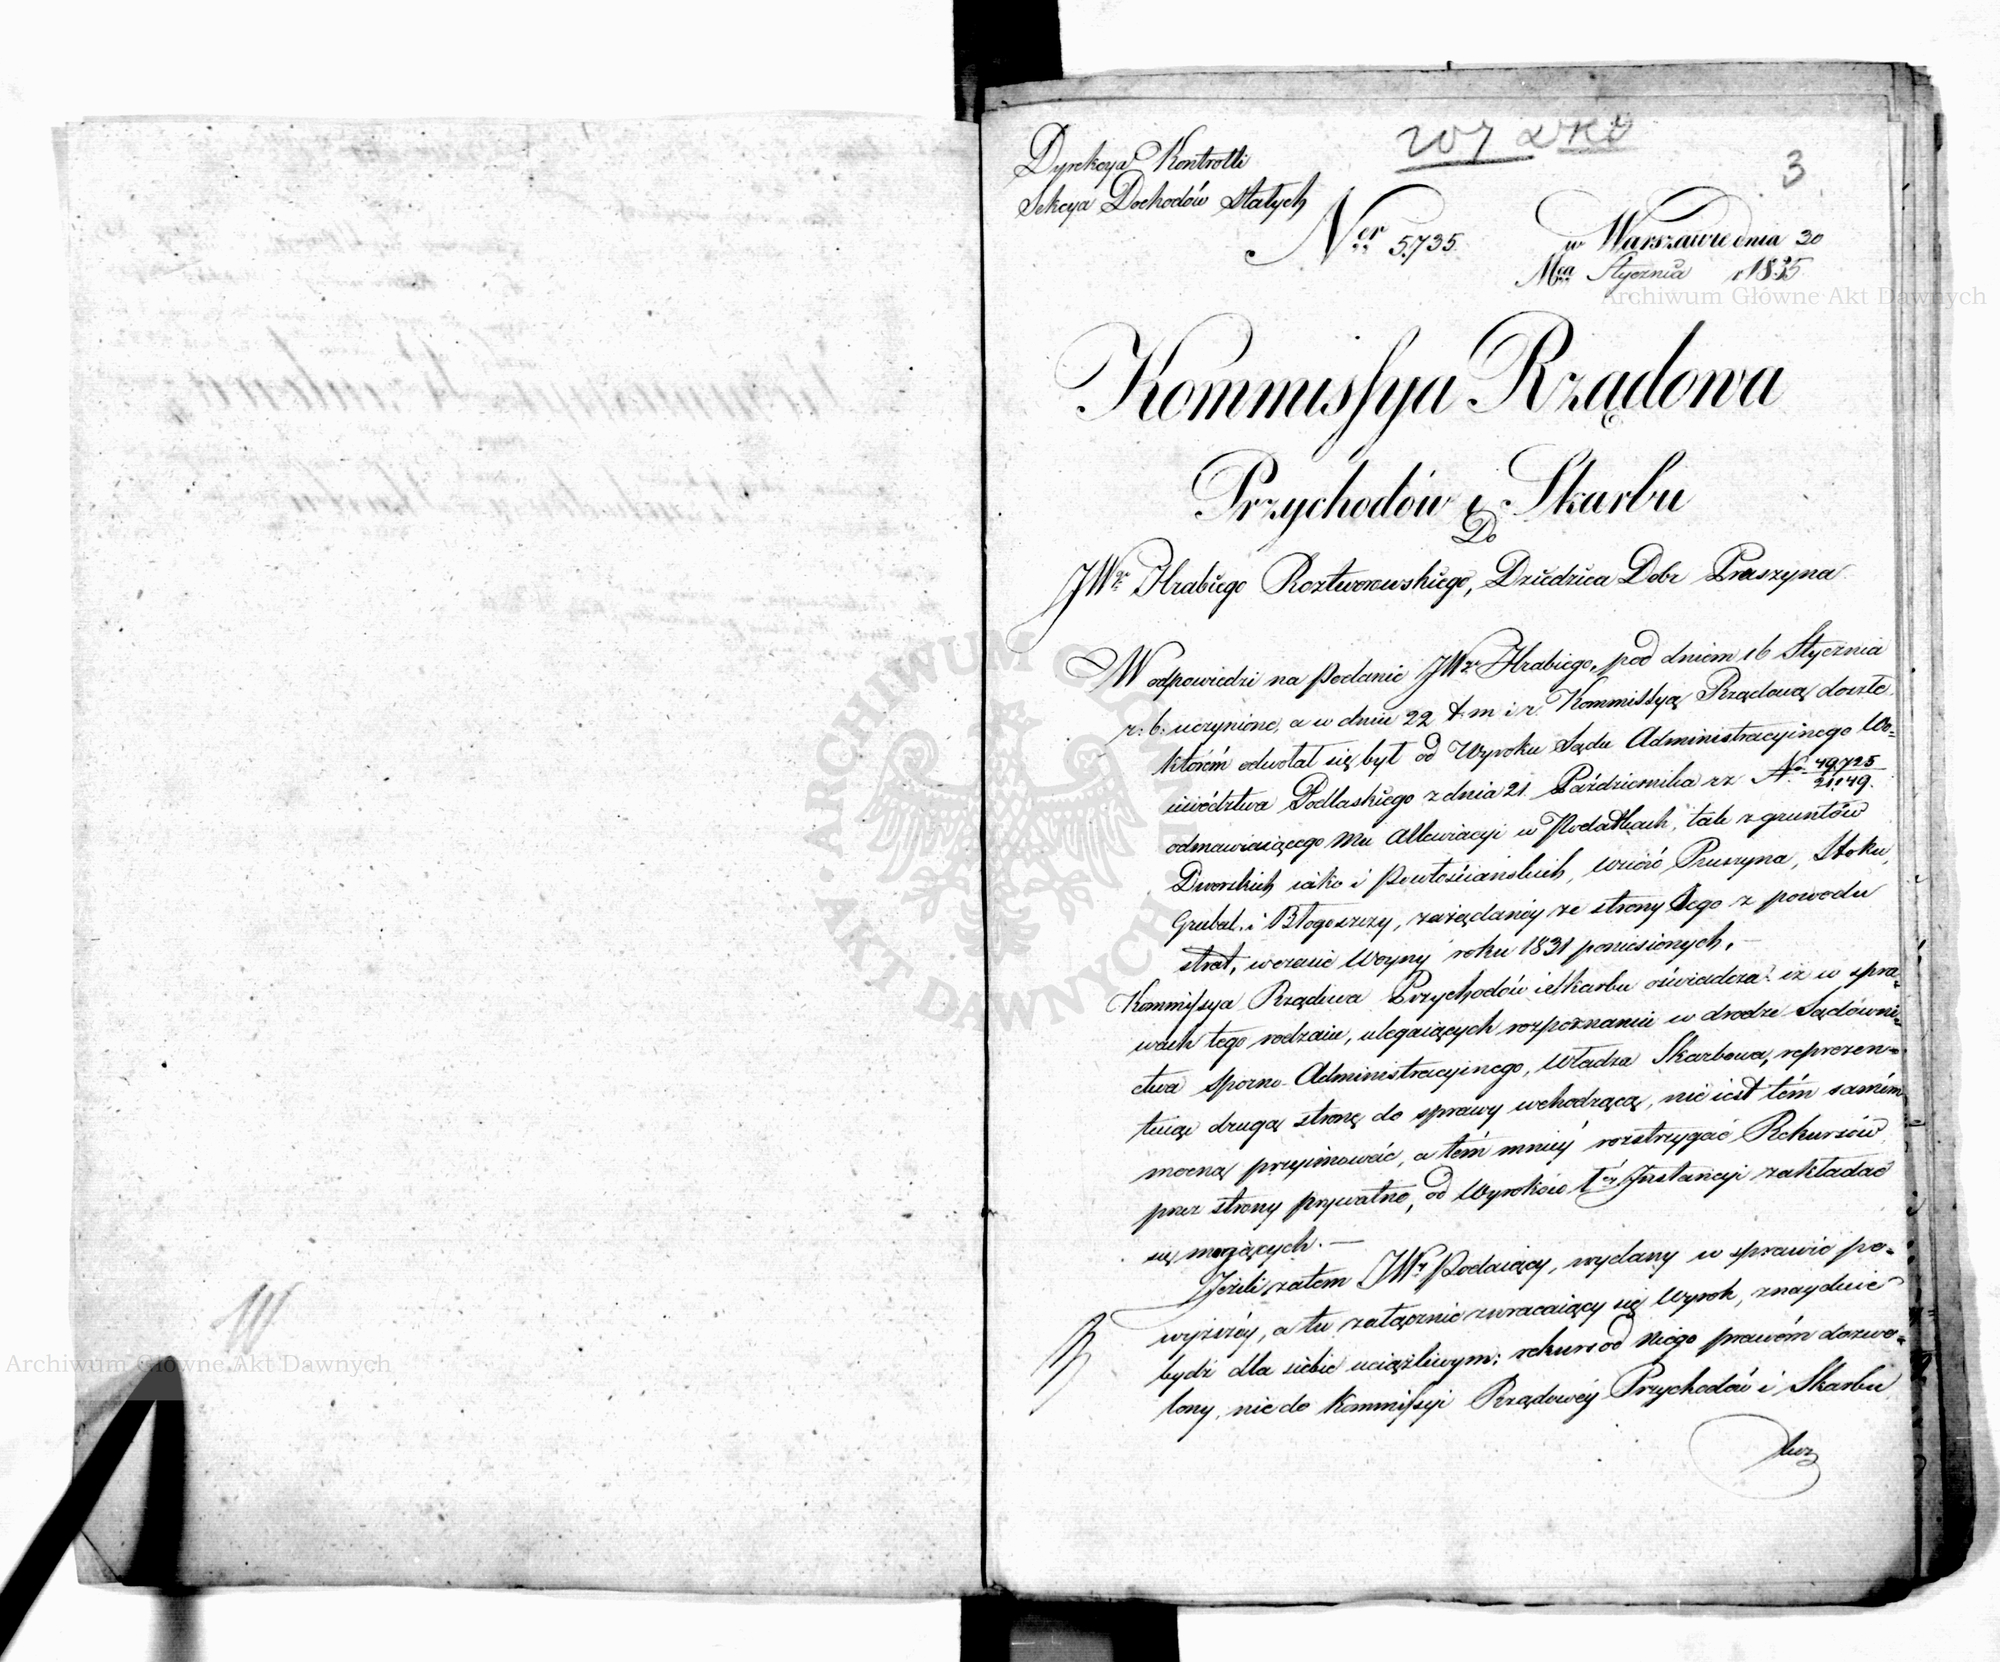 207
3
Dyrekcya Kontrolli
Sekcya Dochodów Stałych
Ner 5735.
w Warszawie dnia 30
Mca Stycznia r 1835
Archiwum Główne Akt Dawnych
Kommissya Rządowa
Przychodów i Skarbu
Do
JWo Hrabiego Roztworowskiego, Dziedzica Dobr Pruszyna
W odpowiedzi na podanie JWo Hrabiego, pod dniem 16 Stycznia
r: b: uczynione, a w dniu 22 t. m i r. Kommissyą Rządową doszłe,
którém odwołał się był od Wyroku Sądu Administracyinego Wo-
iewództwa Podlaskiego z dnia 21. Października rz No 49725/21149.
odmawiaiącego mu allewiacyi w Podatkach, tak z gruntów
Dworskich iako i Powłościańskich, wsiów Pruszyna, Stoku,
Grubal. i Błogoszczy, zażądanéy ze strony tego z powodu
strat, w czasie Woyny roku 1831 poniesionych. —
Kommissya Rządowa Przychodów i Skarbu oświadcza: iż w spra-
wach tego rodzaiu, ulegaiących rozpoznaniu w drodze Sądowni-
ctwa sporno-Administracyinego, Władza Skarbowa, reprezen-
tuiąc drugą stronę do sprawy wchodzącą, nie iest tém samém
mocną przyimować, a tém mniéy rozstrzygać Rekursów
przez strony prywatne, od Wyroków 1éy Instancyi zakładać
się mogących. —
Jeżeli zatem JWy Podaiący, wydany w sprawie po-
wyższéy, a tu załącznie zwracaiący się Wyrok, znayduie
bydź dla siebie uciążliwym; rekurs od niego prawem dozwo-
lony, nie do Kommissyi Rządowéy Przychodów i Skarbu
lecz
Archiwum Główne Akt Dawnych
ARCHIWUM GŁÓWNE AKT DAWNYCH